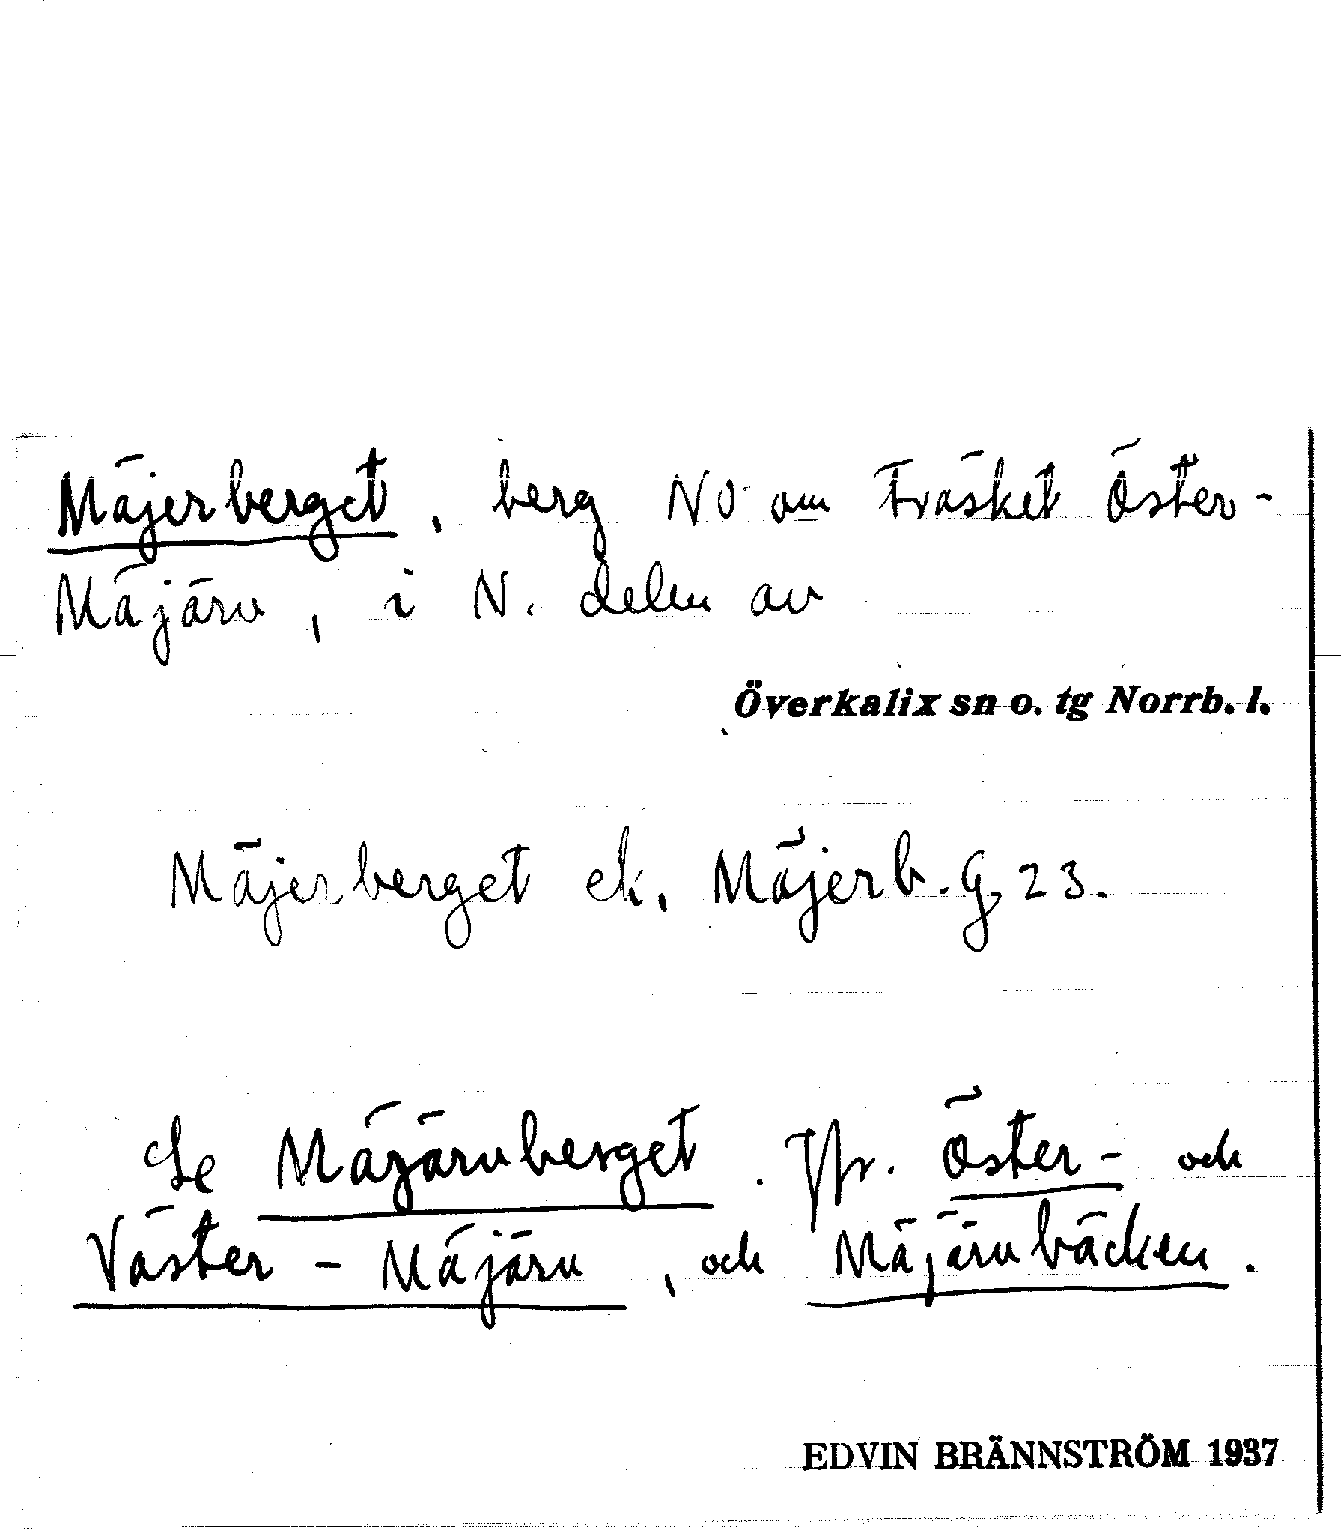 Mäjerberget, berg NO om träsket Öster-
Mäjärv, i N. delen av
Överkalix sn o. tg Norrb. l.
Mäjerberget ek, Mäjerb. G 23.
Se Mäjärvberget. Jfr. Öster- och
Väster-Mäjärv, och Mäjärvbäcken.
EDVIN BRÄNNSTRÖM 1937